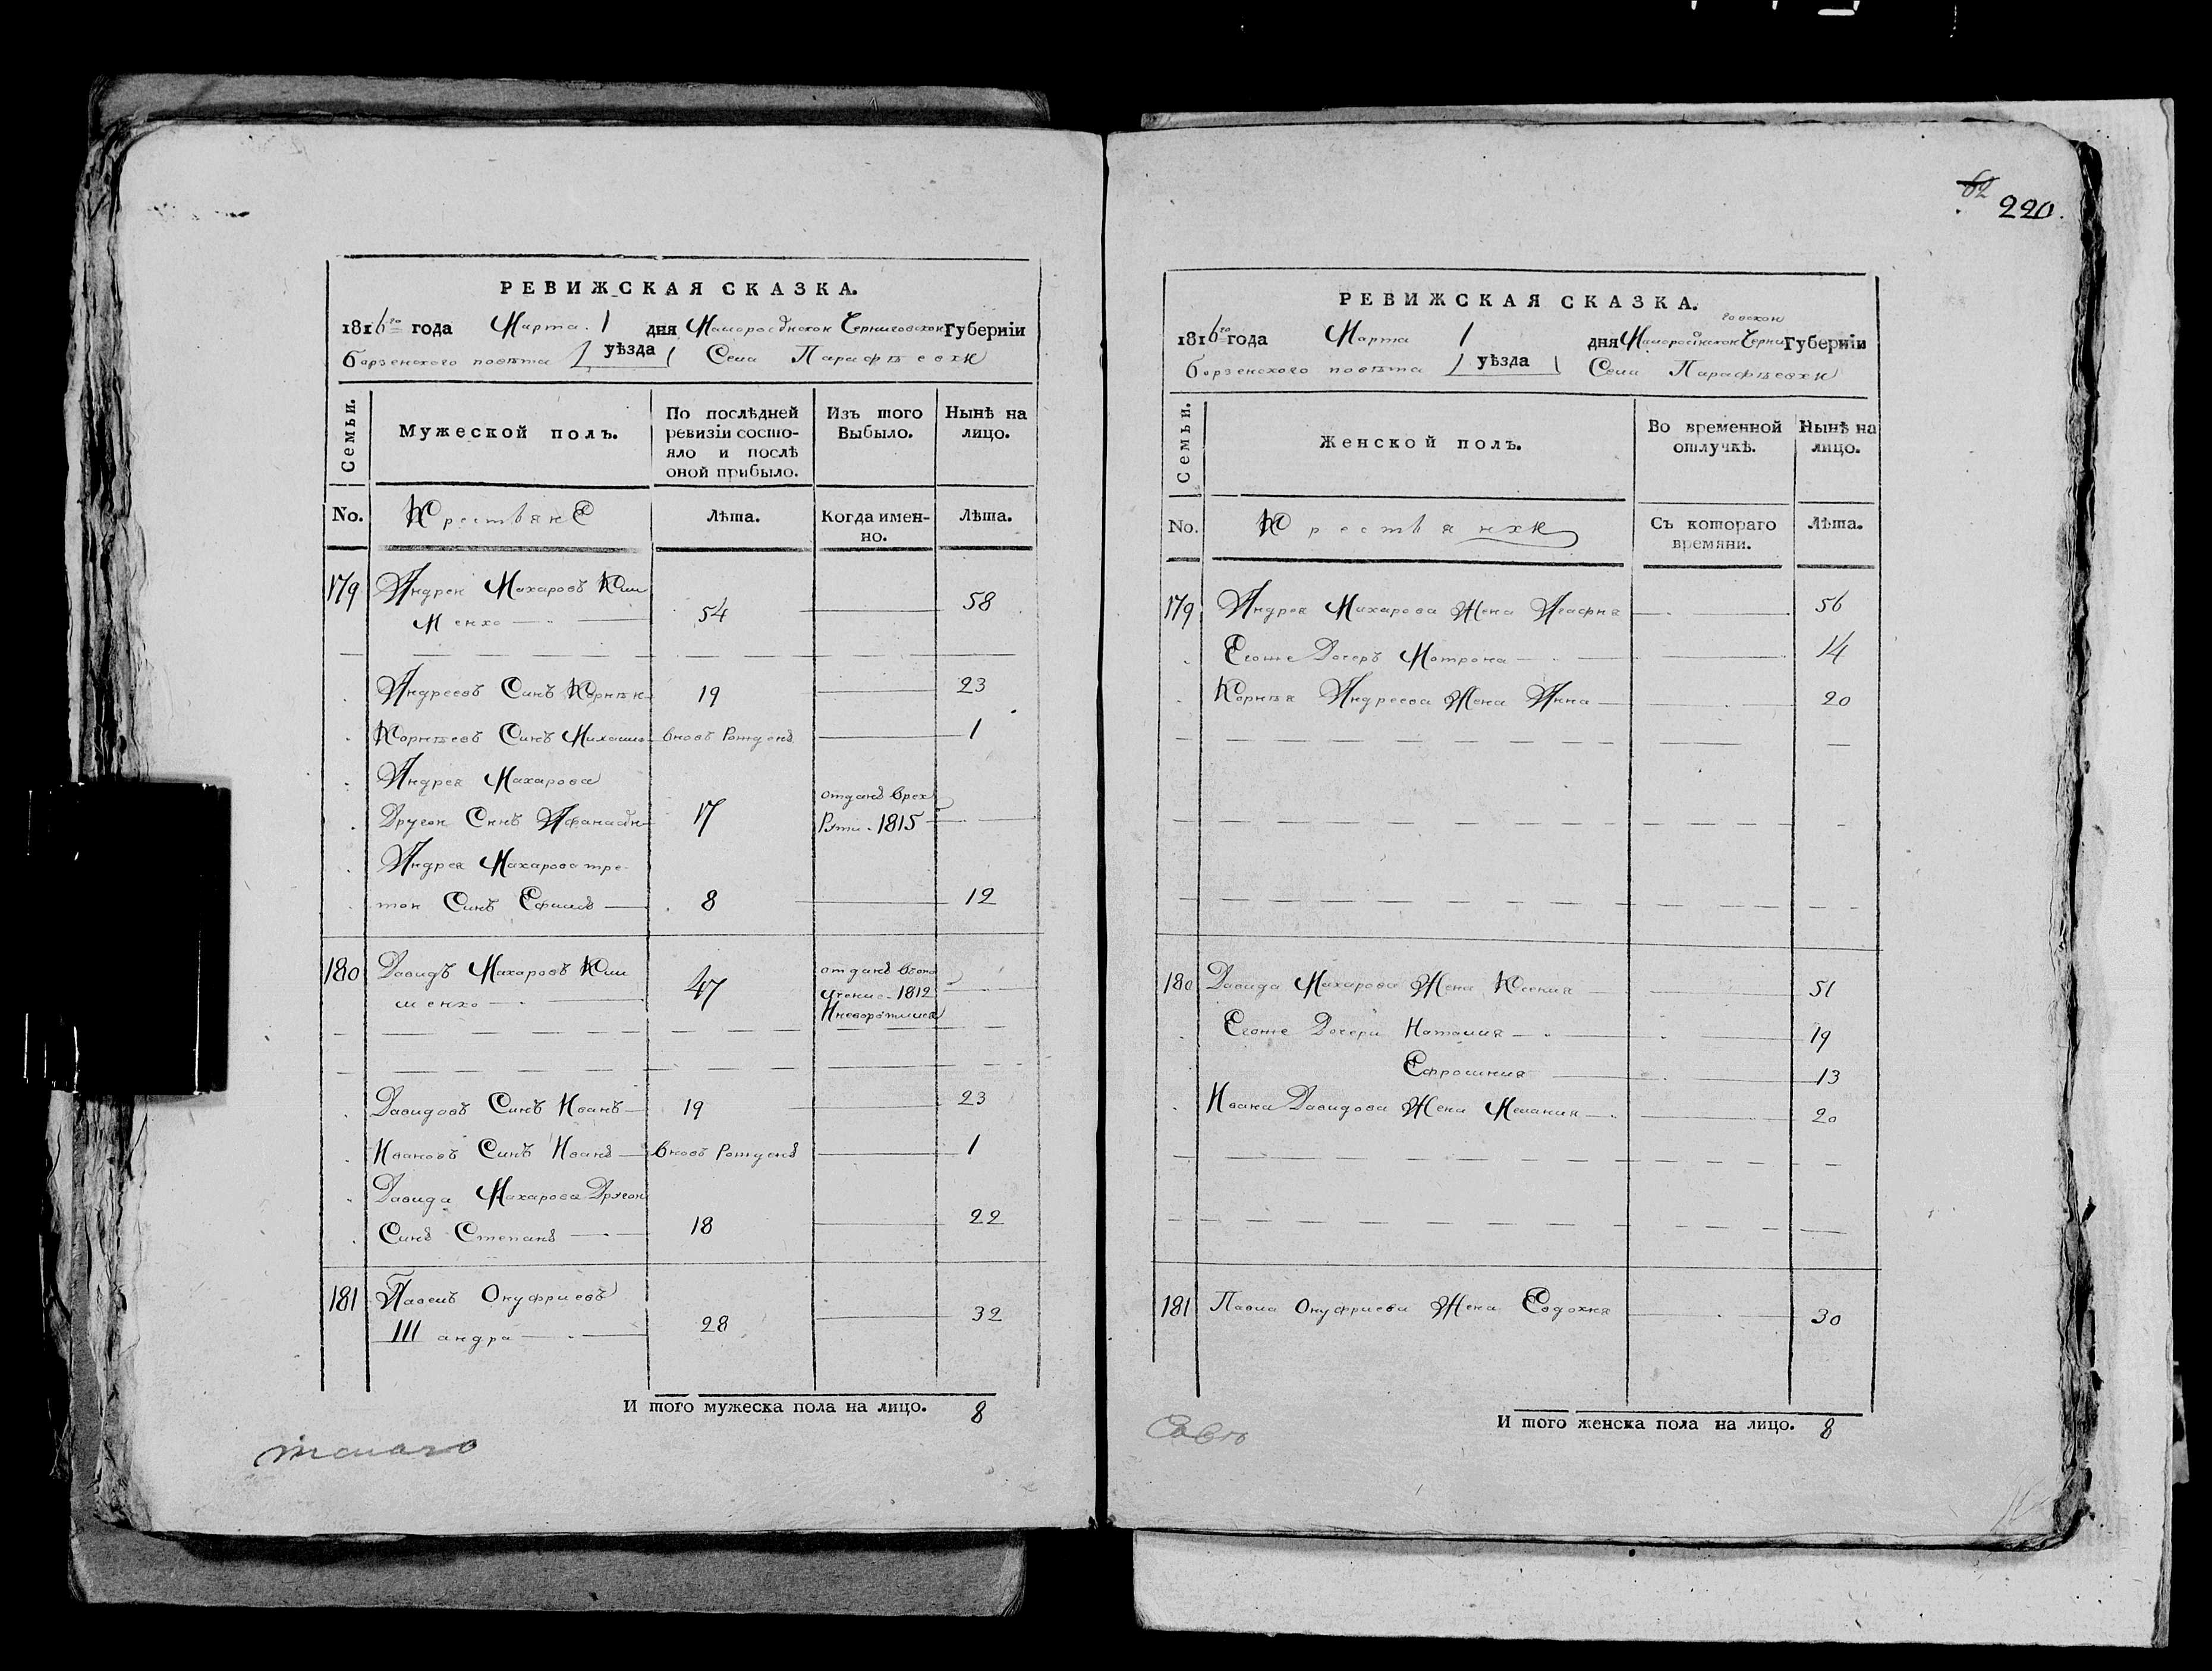 РЕВИЖСКАЯ СКАЗКА.
1816го года Марта 1 дня Малоросійской Черниговской Губерніи
Борзенского повѣта уѣзда Села Парафѣевки
Семьи.
Мужеской полъ.
По послѣдней ревизіи состояло и послѣ оной прибыло.
Изъ того Выбыло.
Нынѣ на лицо.
No.
Крестьяне
Лѣта.
Когда именно.
Лѣта.
179 Андрей Макаровъ Кли
менко 54 58
Андреевъ Синъ Корнѣй 19 23
Корнѣевъ Синъ Михаило вновъ Рожденъ 1
Андрея Макарова
Другой Синъ Афанасій 17 отданъ врек
Руты 1815
Андрея Макарова тре
той Синъ Ефимъ 8 12
180 Давидъ Макаровъ Кли
менко 47 отданъ вопол
чение 1812
Иневоротился
Давидовъ Синъ Иванъ 19 23
Ивановъ Синъ Иванъ вновъ Рожденъ 1
Давида Макарова Другой
Синъ Степанъ 18 22
181 Павелъ Онуфриевъ
Шандра 28 32
И того мужеска пола на лицо. 8
62
220.
РЕВИЖСКАЯ СКАЗКА.
1816го года Марта 1 дня Малоросійской Черниговской Губерніи
Борзенского повѣта уѣзда Села Парафѣевки
Семьи.
Женской полъ.
Во временной отлучкѣ.
Нынѣ на лицо.
No.
Крестьянки
Съ котораго времяни.
Лѣта.
179 Андрея Макарова Жена Агафия 56
Егоже Дочеръ Мотрона 14
Корнѣя Андреева Жена Анна 20
180 Давида Макарова Жена Ксения 51
Егоже Дочери Наталия 19
Ефросиния 13
Ивана Давидова Жена Мелания 20
181 Павла Онуфриева Жена Евдокия 30
И того женска пола на лицо. 8